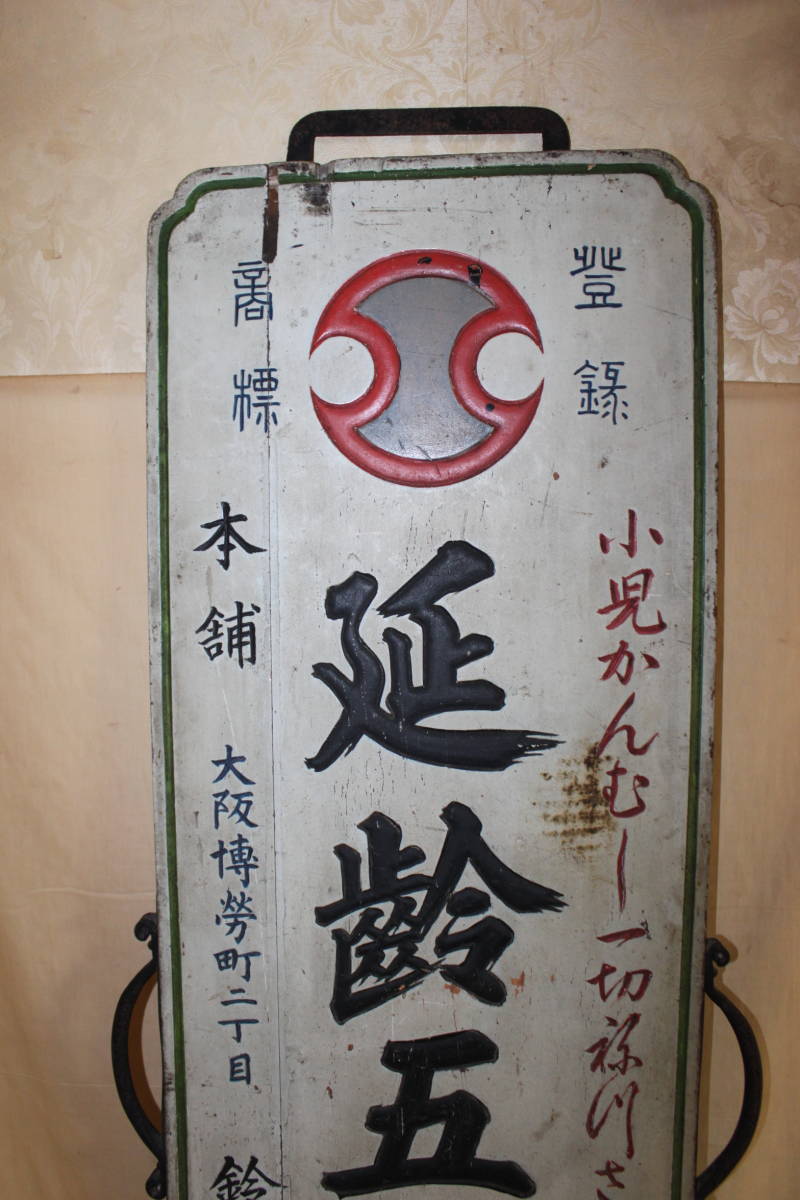 登録
商標
小児かんむし一切祢つさ
延齡五
本舖 大阪博勞町二丁目 鈴